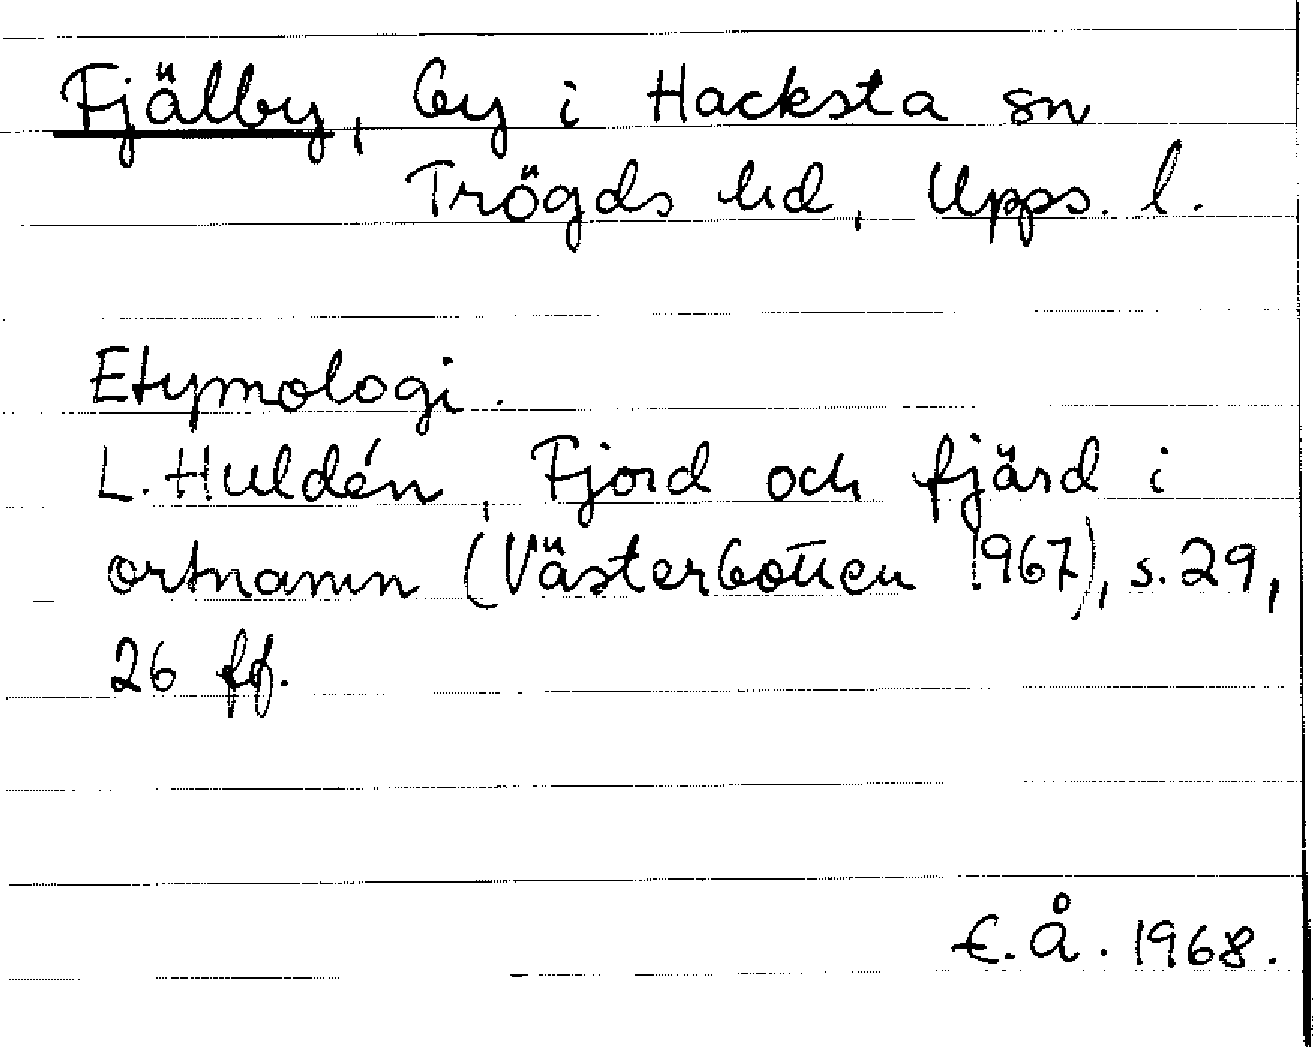 Fjälby, by i Hacksta sn
Trögds hd, Upps. l.
Etymologi.
L. Huldén, Fjord och fjärd i
ortnamn (Västerbotten 1967), s. 29,
26 ff.
E. Å. 1968.